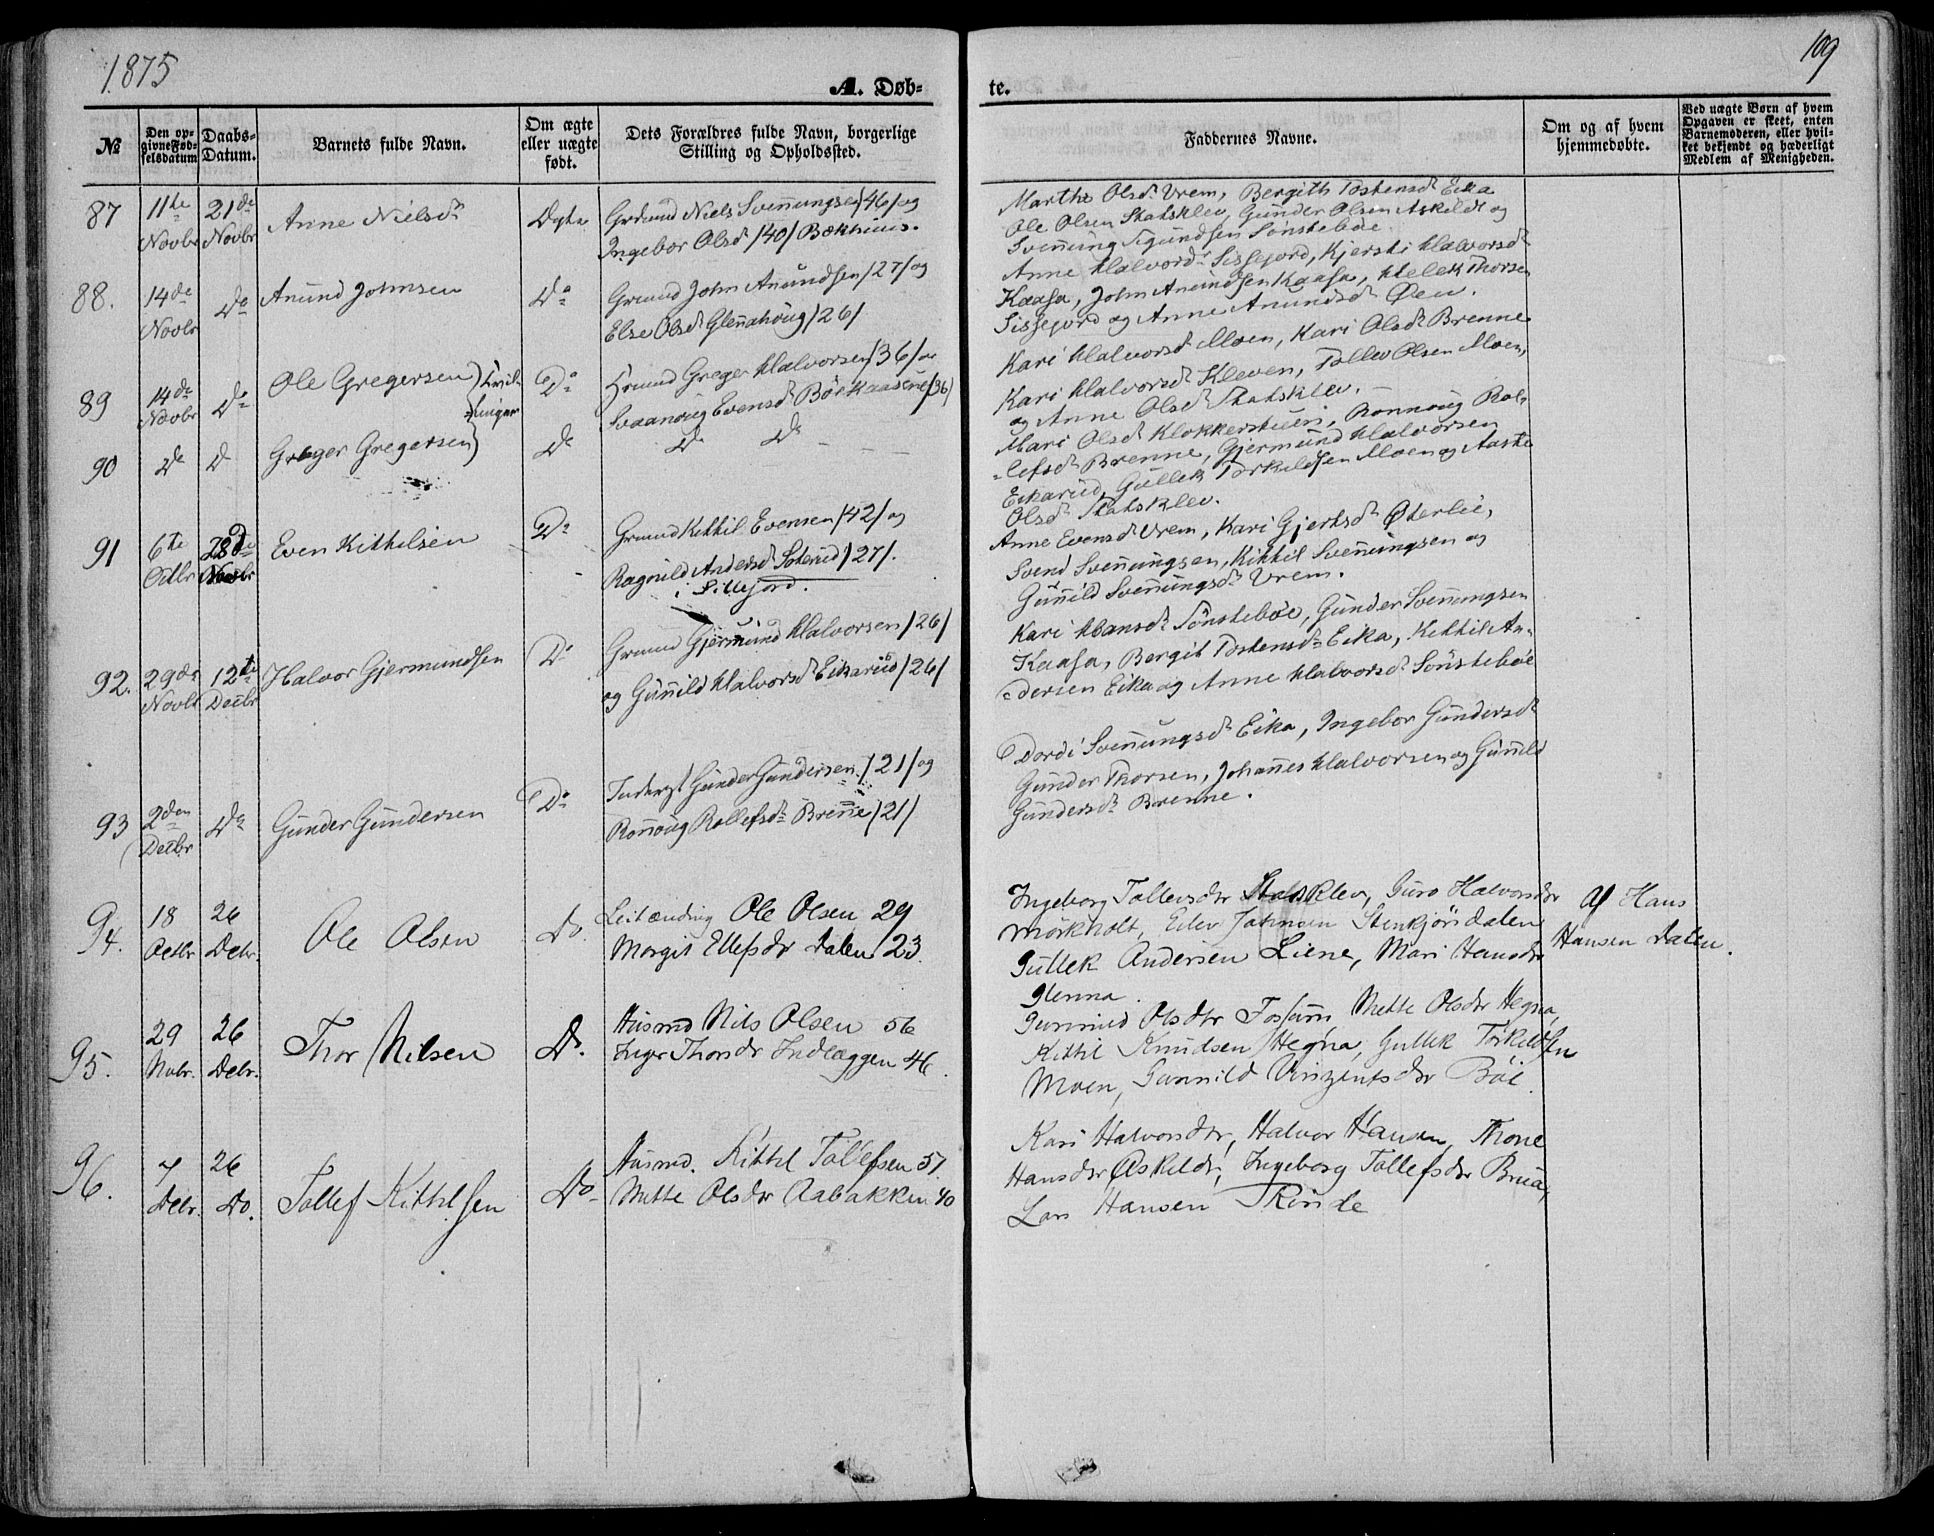 1875
109
A. Døb-
te.
№
Den op-
givne Fød-
selsdatum
Daabs-
Datum.
Barnets fulde Navn.
Om ægte
eller uægte
født.
Dets Forældres fulde Navn, borgerlige
Stilling og Opholdssted.
Faddernes Navne.
Om og af hvem
hjemmedøbte.
Ved uægte Børn af hvem
Opgaven er skeet, enten
Barnemoderen, eller hvil-
ket bekjendt og hæderligt
Medlem af Menigheden.
87 11te 21de Anne Nielsd. Ægte Grdmd Niels Svennungsen /46/ og
Novbr Novbr Ingebor Olsd /40/ Bækhuus.
Marthe Olsd. Vrem, Bergith Tostensd Eika
Ole Olsen Statsklev, Gunder Olsen Askildt og
Svennung Sigundsen Sønstebøe.
88. 14de Do Anund Johnsen Do Grmd John Anundsen /27/ og
Novbr Else Olsd Glennahoug /26/
Anne Halvord. Sissejord, Kjersti Halvorsd
Kaasa, John Anundsen Kaasa, Kittil Thorsen
Sissejord og Anne Anundsd Øen.
89 14de Do Ole Gregersen) Tvil- Do Grmd Greger Halvorsen /36/ og
Novbr linger Svanoug Evensd Böe Kaasene /36/
Kari Halvorsd Moen, Kari Olsd Brenne
Kari Halvorsd Kleven, Tollev Olsen Moen,
og Anne Olsd Statsklev.
90 Do D Greger Gregersen) Do Do Do
Mari Olsd Klokkerstuen, Ronnoug Rol-
lefsd Brenne, Gjermund Halvorsen
Eikarud, Gullek Torkildsen Moen og Aaste
Olsd Statsklev.
91 6te 28de Even Kittilsen Do Grmd Kittil Evensen /42/ og
Octbr Novbr Ragnild Andersd Soterud /27/.
i Sillejord.
Anne Evensd Vrem, Kari Gjertsd Øterlie,
Svend Svennungsen, Kittil Svennungsen og
Gunnild Svennungsd Vrem.
92. 29de 12te Halvor Gjermundsen Do Grmd Gjermund Halvorsen /26/
Novbr Decbr og Gunnild Halvorsd Eikarud /26/
Kari Hansd Sønstebøe, Gunder Svennungsen
Kaasa, Bergit Tostensd Eika, Kittil An-
dersen Eika og Anne Halvorsd Sønstebøe
93 2den Do Gunder Gundersen Do Inderst Gunder Gundersen /21/ og
Decbr Ronnoug Rollefsd Brenne /21/
Dordi Svennungsd Eika, Ingebor Gundersd
Gunder Thorsen, Johannes Halvorsen og Gunnild
Gundersd Brenne.
94. 18 26 Ole Olsen Do. Leilænding Ole Olsen 29
Octbr Debr. Margit Ellefsdr Dalen 23.
Ingeborg Tallevsdtr Statsklev, Guro Halvorsdtr
Mørkholt, Eilev Johnsen Stenkjöndalen
Gullek Andersen Liene, Mari Hansdr
Glenna.
Af Hans
Hansen Dalen.
95. 29 26 Thor Nilsen Do. Husmd Nils Olsen 56
Nvbr. Debr. Inger Thorsdr Indlæggen 46.
Gunnild Olsdtr Fossum Mette Olsdr Hegna,
Kittil Knudsen Hegna, Gullek Torkildsen
Moen, Gunnild Vinzentsdr Böe.
96. 7 26 Tollef Kittilsen Do. Husmd. Kittil Tollefsen 57.
Debr. Do. Mette Olsdr Aabakken 40
Kari Halvorsdtr, Halvor Hansen, Thone
Hansdr Askildt, Ingeborg Tollefsdr Brua,
Lars Hansen Tkinde